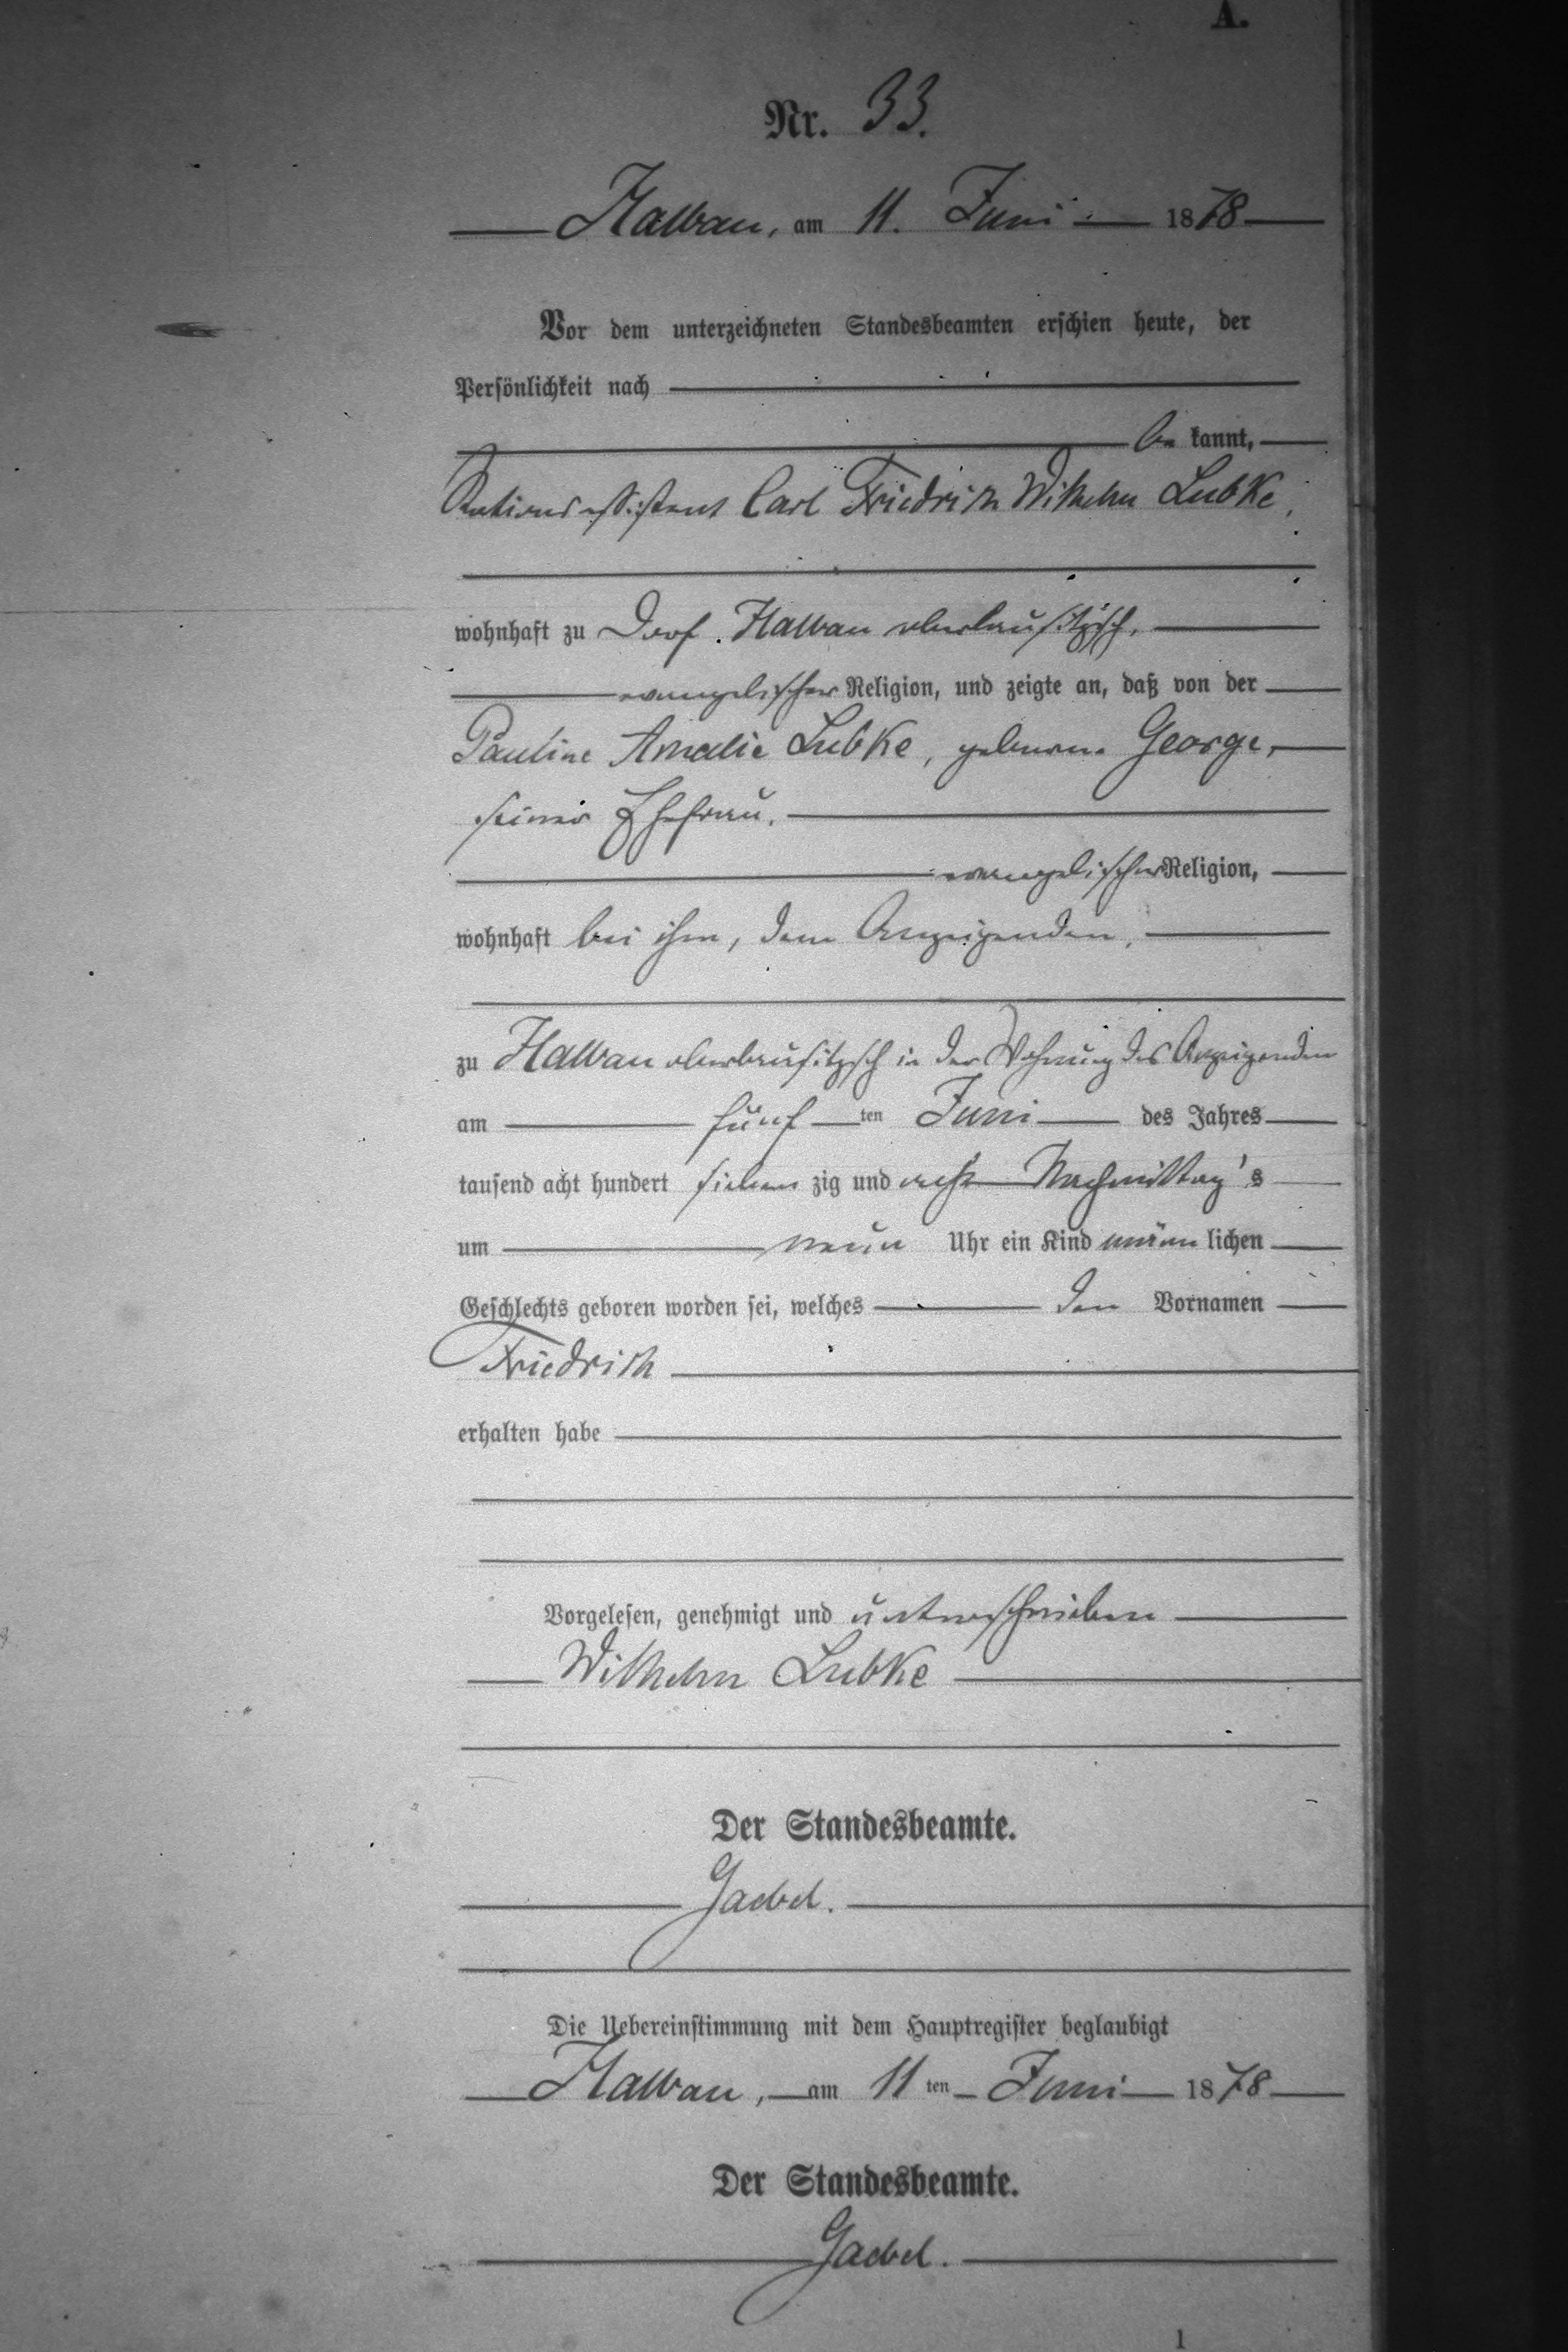 A.
Nr. 33.
Halbau, am 11. Juni 1878
Vor dem unterzeichneten Standesbeamten erschien heute, der
Persönlichkeit nach
be kannt,
Carl Friedrich Wilhelm Lubke,
wohnhaft zu Dorf Halbau oberlausitzisch,
evangelischer Religion, und zeigte an, daß von der
Pauline Amalie Lubke, geborne George,
seiner Ehefrau,
evangelischer Religion,
wohnhaft bei ihm, dem Anzeigenden,
zu Halbau oberlausitzsch in der Wohnung des Anzeigenden
am fünf ten Juni des Jahres
tausend acht hundert sieben zig und acht Nachmittag's
um neun Uhr ein Kind männ lichen
Geschlechts geboren worden sei, welches den Vornamen
Friedrich
erhalten habe
Vorgelesen, genehmigt und unterschrieben
Wilhelm Lubke
Der Standesbeamte.
Gaebel.
Die Uebereinstimmung mit dem Hauptregister beglaubigt
Halbau, am 11 ten Juni 1878
Der Standesbeamte.
Gaebel.
1